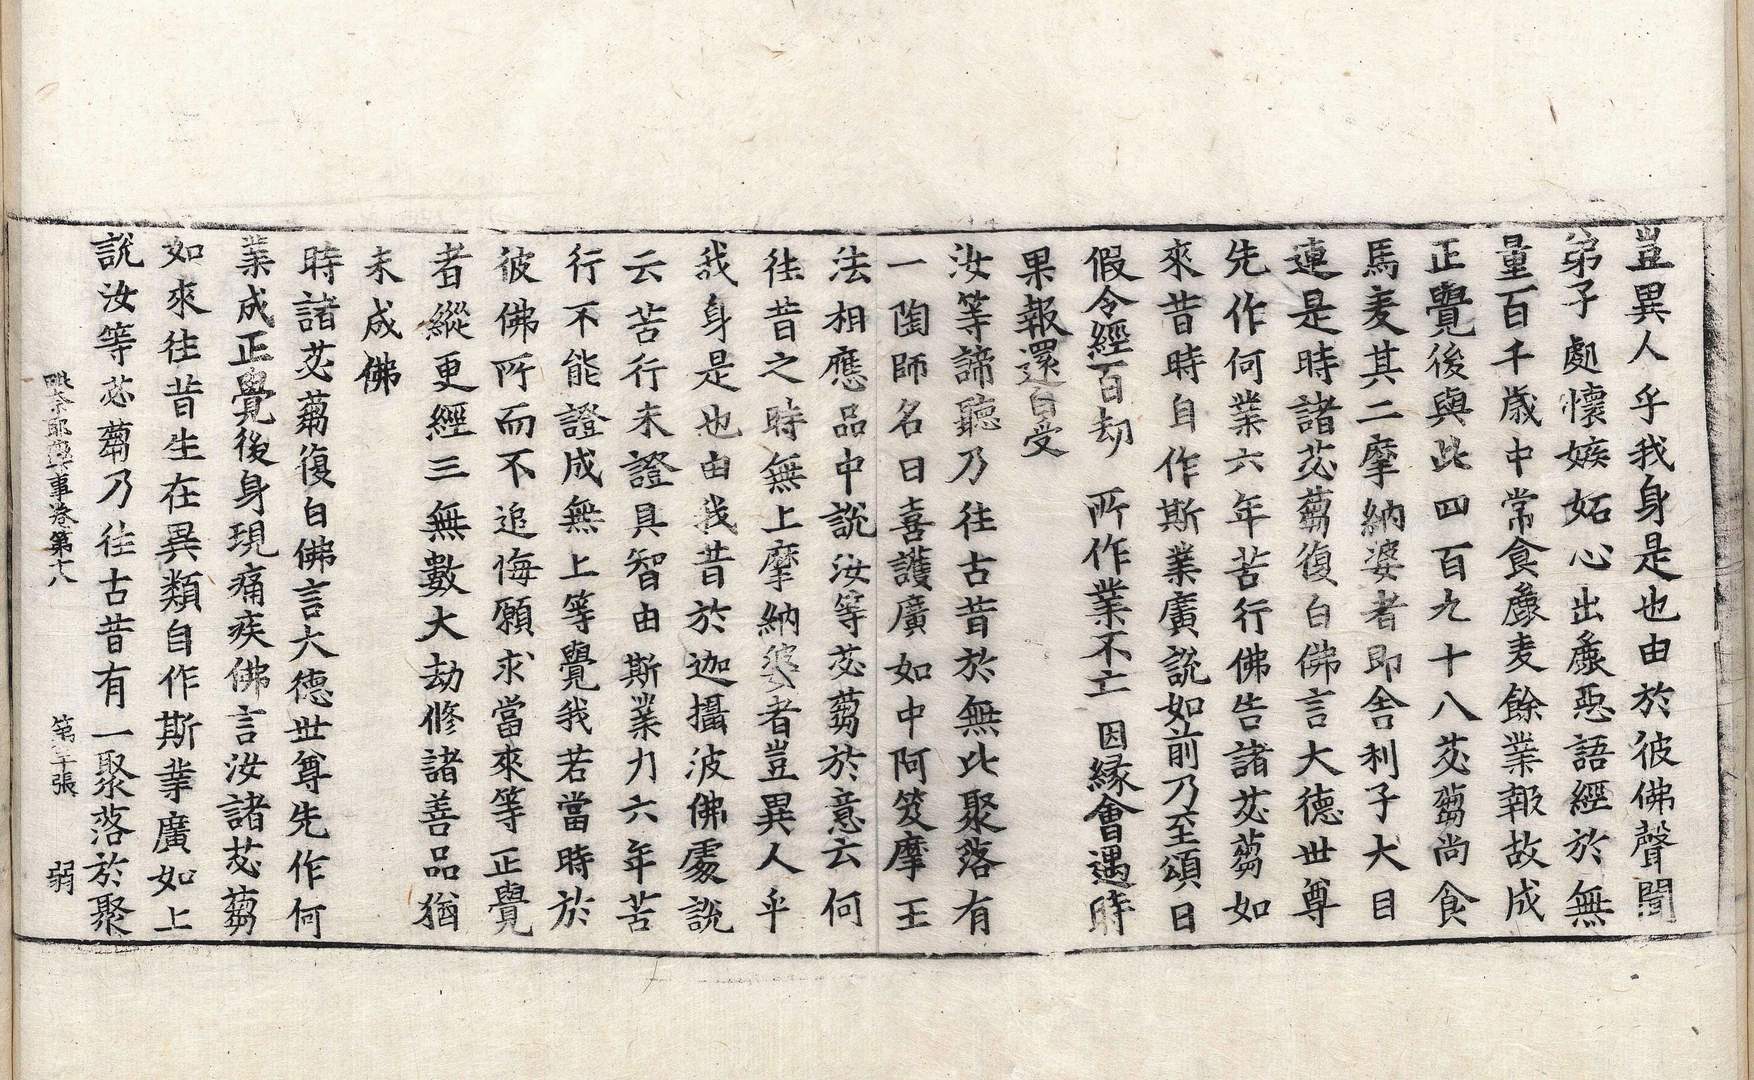 豈異人乎我身是也由於彼佛聲聞
弟子處懷嫉妬心出麁惡語經於無
量百千歲中常食麁麦餘業報故成
正覺後與此四百九十八苾蒭尚食
馬麦其二摩納婆者即舍利子大目
連是時諸苾蒭復白佛言大德世尊
先作何業六年苦行佛告諸苾蒭如
來昔時自作斯業廣說如前乃至頌曰
假令經百劫 所作業不亡 因緣會遇時
果報還自受
汝等諦聽乃往古昔於無比聚落有
一陶師名曰喜護廣如中阿笈摩王
法相應品中說汝等苾蒭於意云何
往昔之時無上摩納婆者豈異人乎
我身是也由我昔於迦攝波佛處說
云苦行未證具智由斯業力六年苦
行不能證成無上等覺我若當時於
彼佛所而不追悔願求當來等正覺
者縱更經三無數大劫修諸善品猶
未成佛
時諸苾蒭復白佛言大德世尊先作何
業成正覺後身現痛疾佛言汝諸苾蒭
如來往昔生在異類自作斯業廣如上
說汝等苾蒭乃往古昔有一聚落於聚
耶藥事卷第十八 第 張 弱